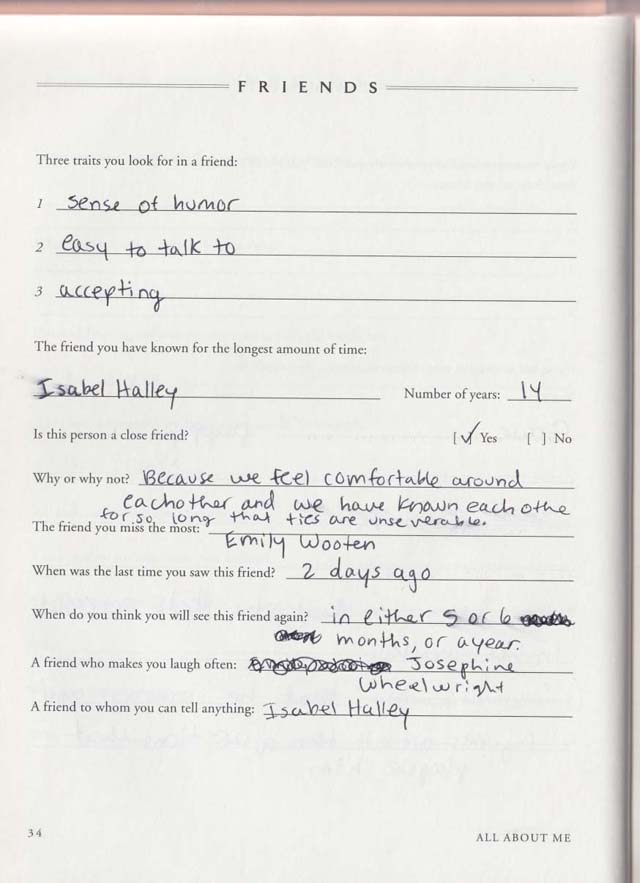 FRIENDS
Three traits you look for in a friend:
1 sense of humor
2 easy to talk to
3 accepting
The friend you have known for the longest amount of time:
Isabel Halley Number of years: 14
Is this person a close friend? [✓] Yes [ ] No
Why or why not? Because we feel comfortable around
eachother and we have known each othe
for so long that ties are unseverable.
The friend you miss the most:
Emily Wooten
When was the last time you saw this friend? 2 days ago
When do you think you will see this friend again? in either 5 or 6
months, or a year.
A friend who makes you laugh often: Josephine
Wheelwright
A friend to whom you can tell anything: Isabel Halley
34 ALL ABOUT ME